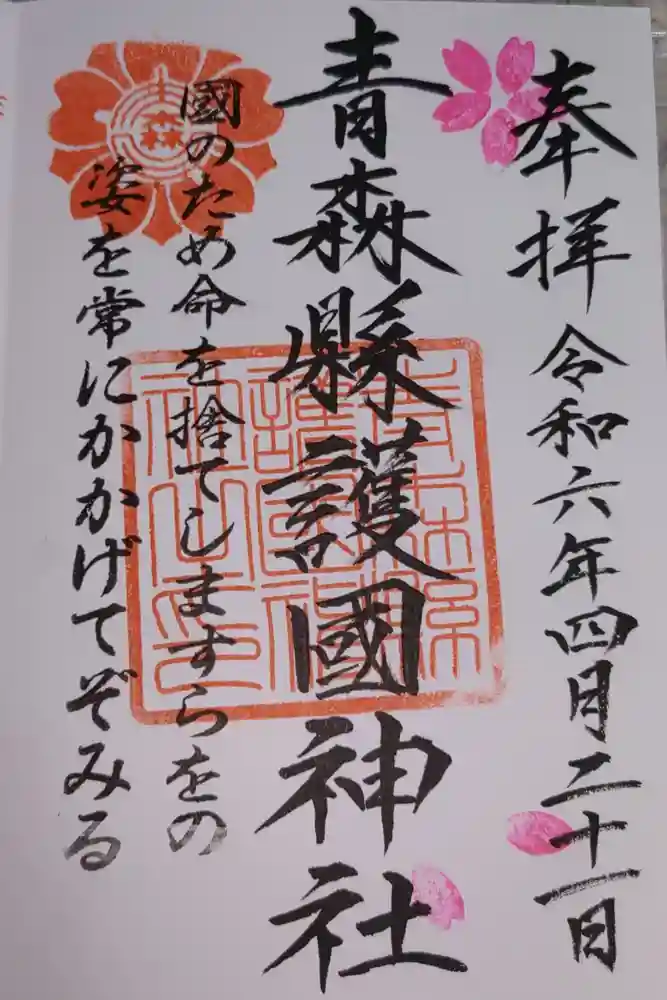 奉拝 令和六年四月二十一日
青森縣護國神社
國のため命を捨てしますらをの
姿を常にかかげてぞみる
青森縣
護國神
社之印
森